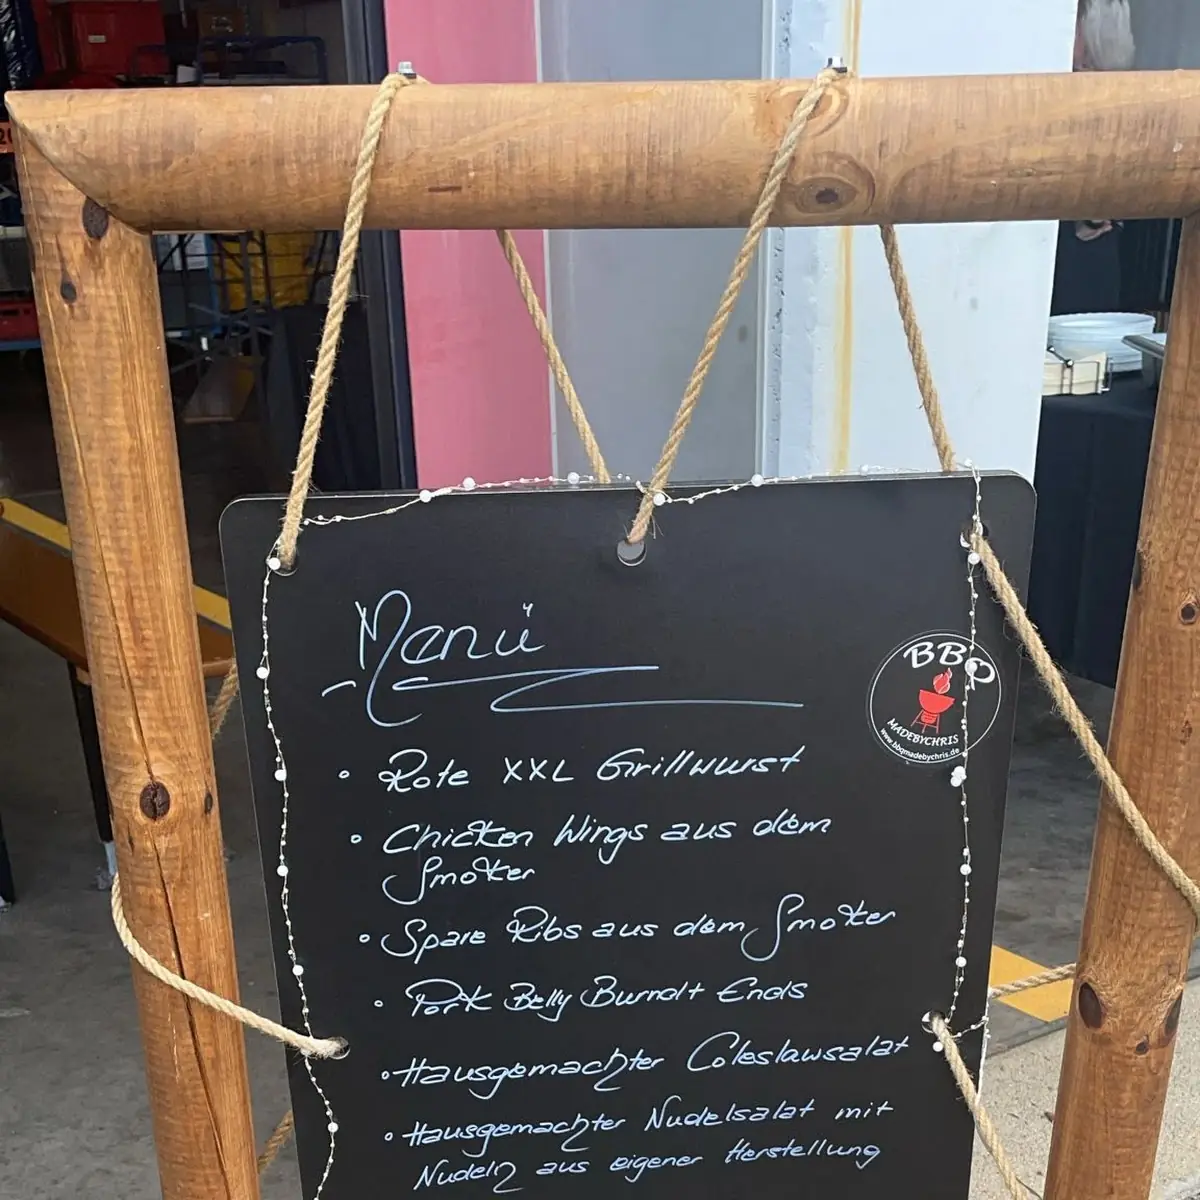 Menü
BBQ
MADEBYCHRIS
www.bbqmadebychris.de
• Rote XXL Grillwurst
• Chicken Wings aus dem
Smoker
• Spare Ribs aus dem Smoker
• Pork Belly Burndt Ends
• Hausgemachter Coleslawsalat
• Hausgemachter Nudelsalat mit
Nudeln aus eigener Herstellung